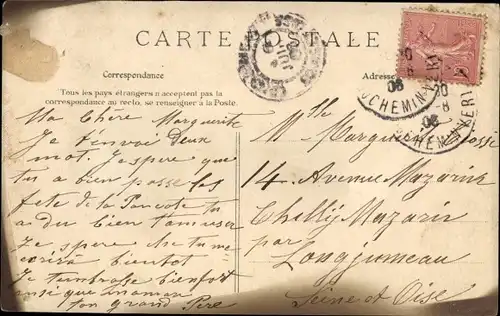 CARTE POSTALE
Correspondance
Tous les pays étrangers n'acceptent pas la
correspondance au recto, se renseigner à la Poste.
Adresse
Ma Chère Marguerite
Je t'envoi deux
mot. J'espere que
tu a bien passe les
fete de la Pancote tu
a du bien t'amuser
Je spere que tu me
ecrira bientot
Je t'embrasse bien fort
ainsi que maman
ton grand Père
Mlle Marguerite
14, Avenue Mazarin
Chilly Mazarin
par
Longjumeau
Seine et Oise